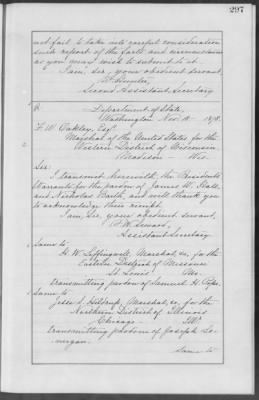 297
not fail to take into careful consideration
such report of the facts and circumstances
as you may wish to submit to it.
I am, sir, your obedient servant,
Hunter,
Second Assistant Secretary
Department of State,
Washington Nov. 1878.
F. W. Oakley, Esq.
Marshal of the United States for the
Western District of Wisconsin
Madison — Wis.
Sir:
I transmit herewith, the President's
Warrants for the pardon of James W. Hall,
and Nicholas Barth, and will thank you
to acknowledge their receipt.
I am, Sir, your obedient servant,
F. W. Seward,
Assistant Secretary
Same to
H. W. Leffingwell, Marshal, &c, for the
Eastern District of Missouri
St. Louis Mo.
transmitting pardon of Samuel H.
Same to
Jesse S. Hildrup, Marshal, &c, for the
Northern District of Illinois
Chicago Ill.
transmitting pardon of Joseph Lo-
nergan.
Same to